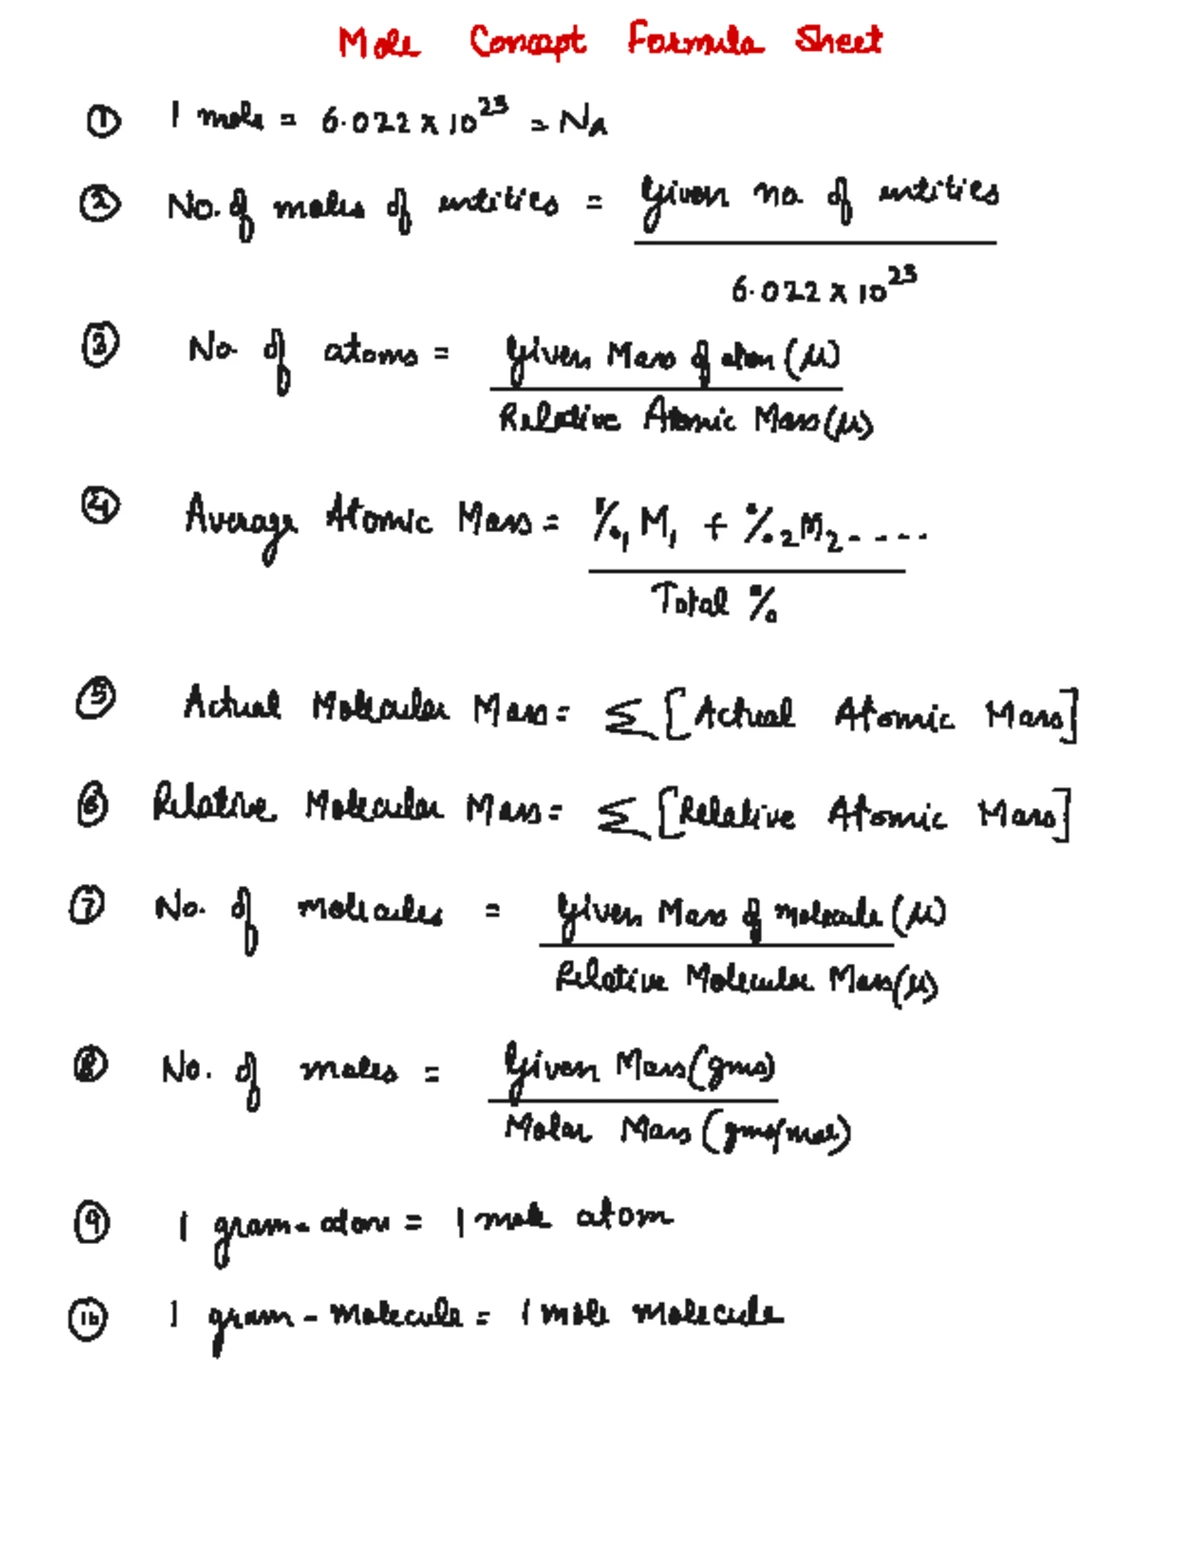 Mole Concept Formula Sheet
① 1 mole = 6.022 x 10²³ = N_A
② No. of moles of entities = Given no. of entities
6.022 x 10²³
③ No. of atoms = Given Mass of atom (μ)
Relative Atomic Mass (μ)
④ Average Atomic Mass = %₁ M₁ + %₂ M₂ .....
Total %
⑤ Actual Molecular Mass = Σ [Actual Atomic Mass]
⑥ Relative Molecular Mass = Σ [Relative Atomic Mass]
⑦ No. of molecules = Given Mass of molecule (μ)
Relative Molecular Mass (μ)
⑧ No. of moles = Given Mass (gms)
Molar Mass (gms/mol)
⑨ 1 gram-atom = 1 mole atom
⑩ 1 gram-molecule = 1 mole molecule